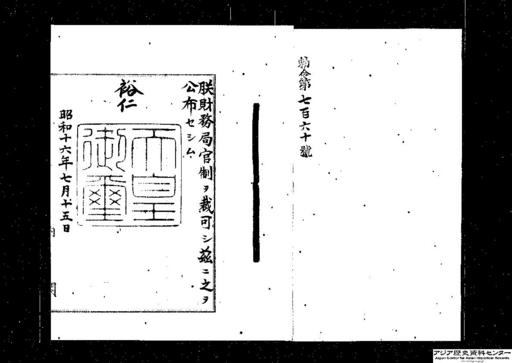 勅令第七百六十號
朕財務局官制ヲ裁可シ茲ニ之ヲ
公布セシム
裕仁
天皇
御璽
昭和十六年七月十五日
アジア歴史資料センター
Japan Center for Asian Historical Records